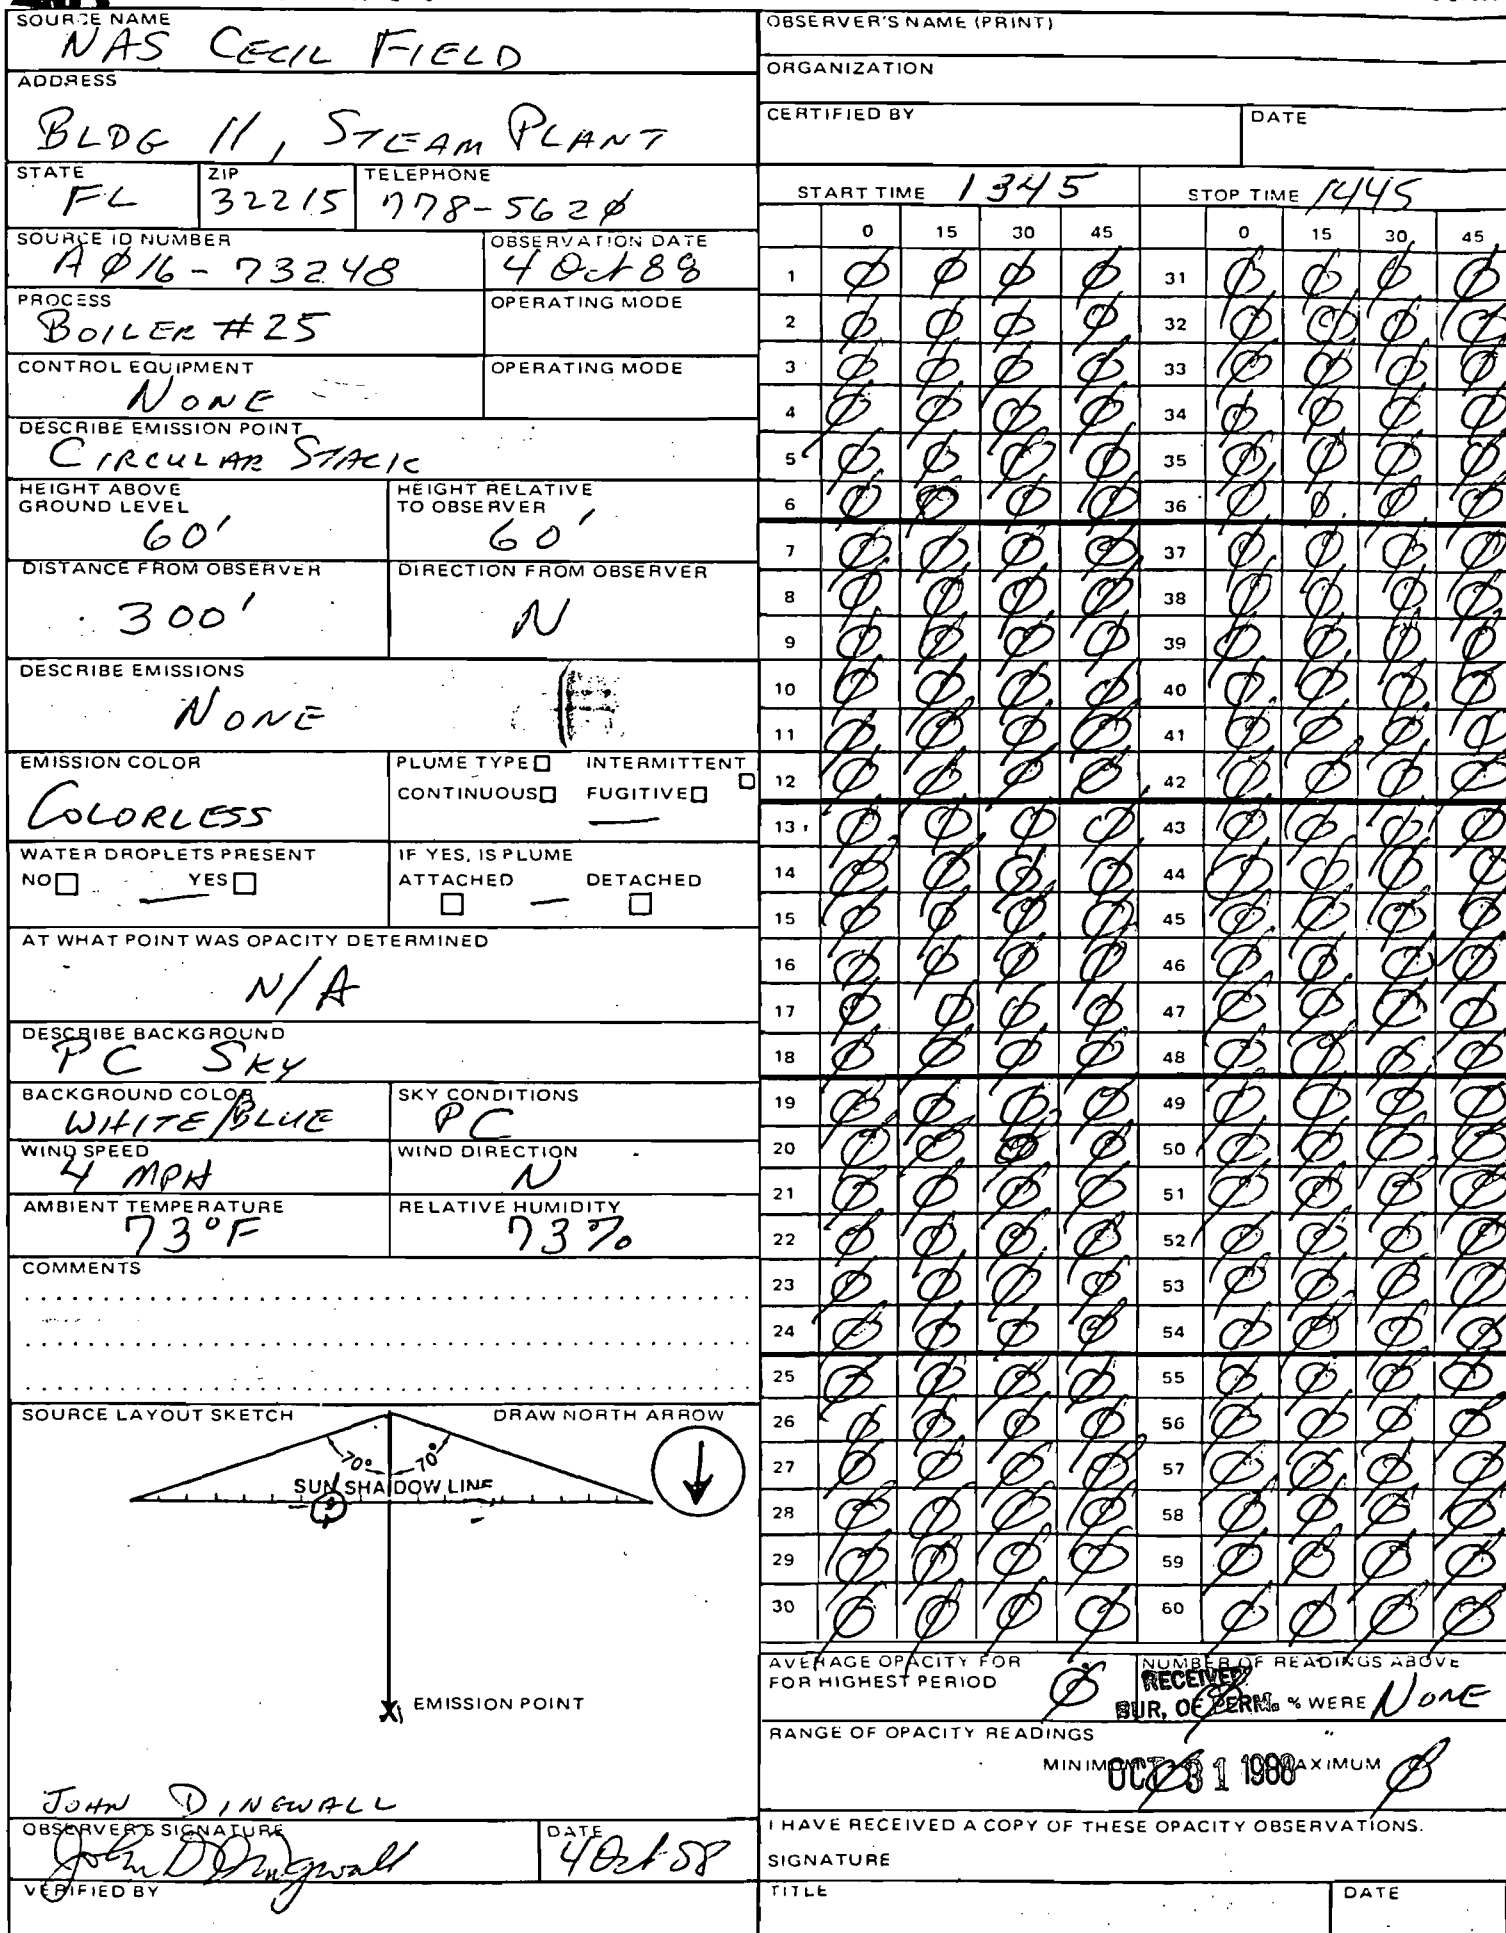 SOURCE NAME
NAS CECIL FIELD
ADDRESS
BLDG 11, STEAM PLANT
STATE ZIP TELEPHONE
FL 32215 778-562Ø
SOURCE ID NUMBER OBSERVATION DATE
AØ16-73248 4 Oct 88
PROCESS OPERATING MODE
BOILER #25
CONTROL EQUIPMENT OPERATING MODE
NONE
DESCRIBE EMISSION POINT
CIRCULAR STACK
HEIGHT ABOVE GROUND LEVEL HEIGHT RELATIVE TO OBSERVER
60' 60'
DISTANCE FROM OBSERVER DIRECTION FROM OBSERVER
300' N
DESCRIBE EMISSIONS
NONE
EMISSION COLOR PLUME TYPE INTERMITTENT
COLORLESS CONTINUOUS FUGITIVE
WATER DROPLETS PRESENT IF YES, IS PLUME
NO YES ATTACHED DETACHED
AT WHAT POINT WAS OPACITY DETERMINED
N/A
DESCRIBE BACKGROUND
PC SKY
BACKGROUND COLOR SKY CONDITIONS
WHITE/BLUE PC
WIND SPEED WIND DIRECTION
4 MPH N
AMBIENT TEMPERATURE RELATIVE HUMIDITY
73°F 73%
COMMENTS
SOURCE LAYOUT SKETCH DRAW NORTH ARROW
70° 70°
SUN SHADOW LINE
X EMISSION POINT
JOHN DINGWALL
OBSERVER'S SIGNATURE DATE
John D Dingwall 4 Oct 88
VERIFIED BY
OBSERVER'S NAME (PRINT)
ORGANIZATION
CERTIFIED BY DATE
START TIME 1345 STOP TIME 1445
0 15 30 45 0 15 30 45
1 Ø Ø Ø Ø 31 Ø Ø Ø Ø
2 Ø Ø Ø Ø 32 Ø Ø Ø Ø
3 Ø Ø Ø Ø 33 Ø Ø Ø Ø
4 Ø Ø Ø Ø 34 Ø Ø Ø Ø
5 Ø Ø Ø Ø 35 Ø Ø Ø Ø
6 Ø Ø Ø Ø 36 Ø Ø Ø Ø
7 Ø Ø Ø Ø 37 Ø Ø Ø Ø
8 Ø Ø Ø Ø 38 Ø Ø Ø Ø
9 Ø Ø Ø Ø 39 Ø Ø Ø Ø
10 Ø Ø Ø Ø 40 Ø Ø Ø Ø
11 Ø Ø Ø Ø 41 Ø Ø Ø Ø
12 Ø Ø Ø Ø 42 Ø Ø Ø Ø
13 Ø Ø Ø Ø 43 Ø Ø Ø Ø
14 Ø Ø Ø Ø 44 Ø Ø Ø Ø
15 Ø Ø Ø Ø 45 Ø Ø Ø Ø
16 Ø Ø Ø Ø 46 Ø Ø Ø Ø
17 Ø Ø Ø Ø 47 Ø Ø Ø Ø
18 Ø Ø Ø Ø 48 Ø Ø Ø Ø
19 Ø Ø Ø Ø 49 Ø Ø Ø Ø
20 Ø Ø Ø Ø 50 Ø Ø Ø Ø
21 Ø Ø Ø Ø 51 Ø Ø Ø Ø
22 Ø Ø Ø Ø 52 Ø Ø Ø Ø
23 Ø Ø Ø Ø 53 Ø Ø Ø Ø
24 Ø Ø Ø Ø 54 Ø Ø Ø Ø
25 Ø Ø Ø Ø 55 Ø Ø Ø Ø
26 Ø Ø Ø Ø 56 Ø Ø Ø Ø
27 Ø Ø Ø Ø 57 Ø Ø Ø Ø
28 Ø Ø Ø Ø 58 Ø Ø Ø Ø
29 Ø Ø Ø Ø 59 Ø Ø Ø Ø
30 Ø Ø Ø Ø 60 Ø Ø Ø Ø
AVERAGE OPACITY FOR NUMBER OF READINGS ABOVE
FOR HIGHEST PERIOD Ø Ø % WERE NONE
RECEIVED
BUR. OF PERM.
RANGE OF OPACITY READINGS
MINIMUM Ø MAXIMUM Ø
OCT 31 1988
I HAVE RECEIVED A COPY OF THESE OPACITY OBSERVATIONS.
SIGNATURE
TITLE DATE